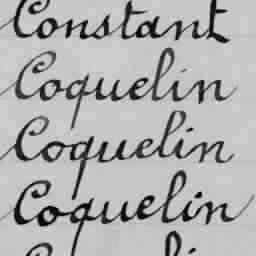 Constant
Coquelin
Coquelin
Coquelin